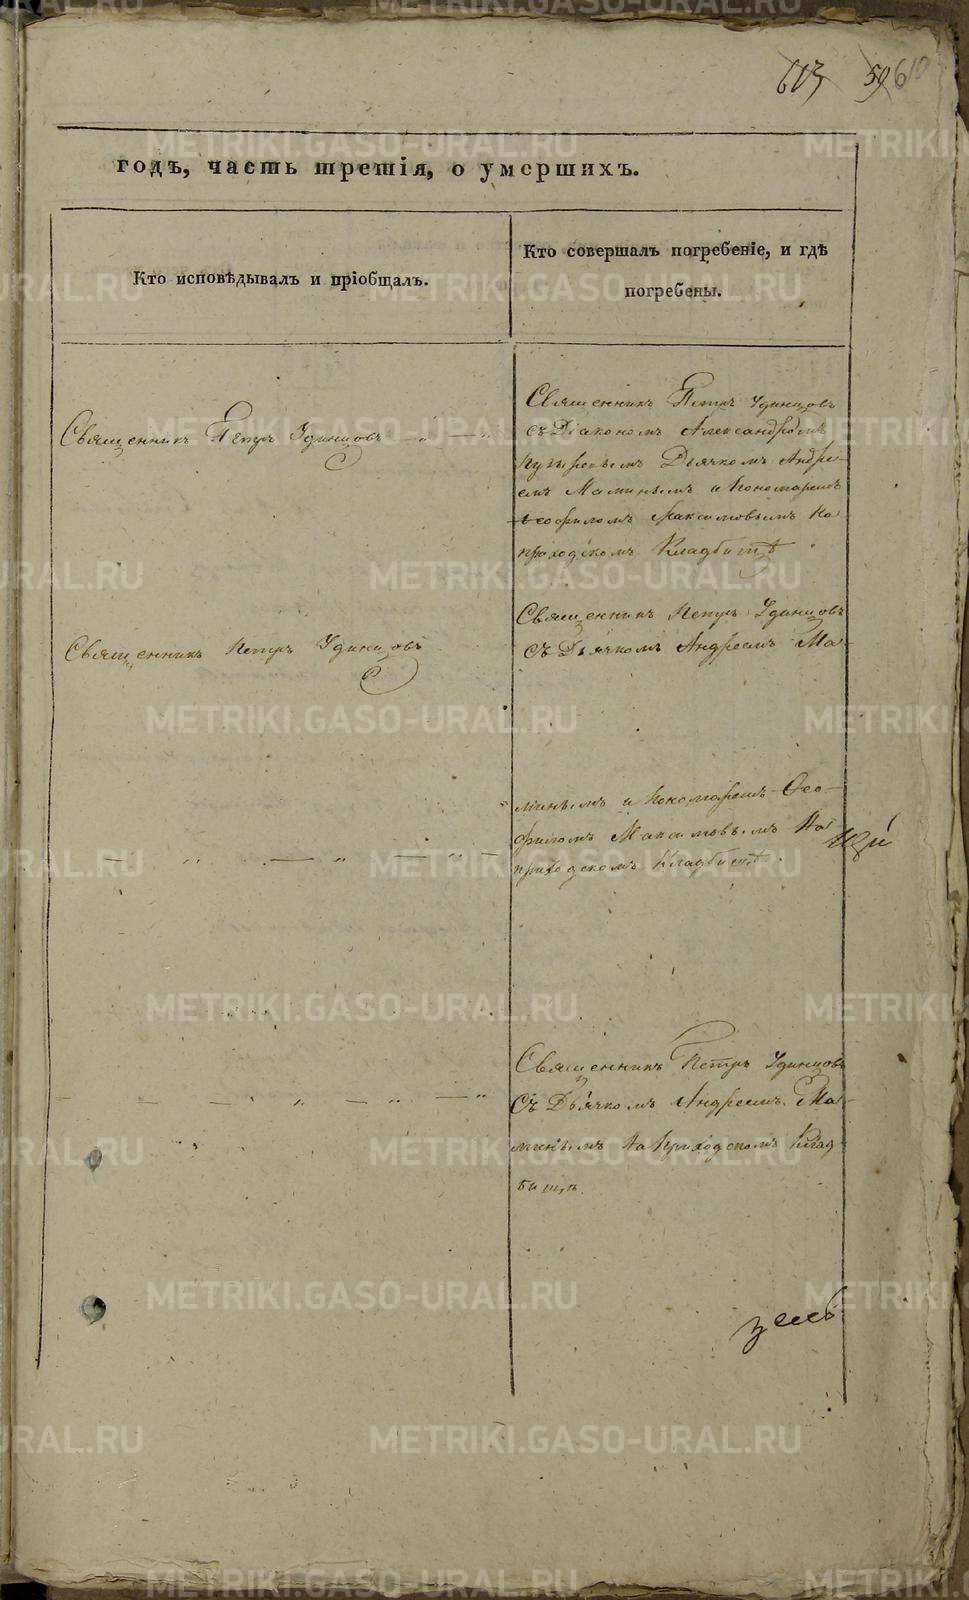 613 59 610
годъ, часть третія, о умершихъ.
Кто исповѣдывалъ и пріобщалъ.
Кто совершалъ погребеніе, и гдѣ
погребены.
Священникъ Петръ Удинцовъ
Священникъ Петръ Удинцовъ
съ Діакономъ Александромъ
Дьячкомъ Андре-
емъ Маминымъ и Пономаремъ
Ѳеофиломъ Максимовымъ На
приходскомъ Кладбищѣ
Священникъ Петръ Удинцовъ
Священникъ Петръ Удинцовъ
съ Дьячкомъ Андреемъ Ма-
минымъ и Пономаремъ Ѳео-
филомъ Максимовымъ На
приходскомъ Кладбищѣ.
Священникъ Петръ Удинцовъ
съ Дьячкомъ Андреемъ Ма-
минымъ На Приходскомъ Клад
бищѣ.
METRIKI.GASO-URAL.RU